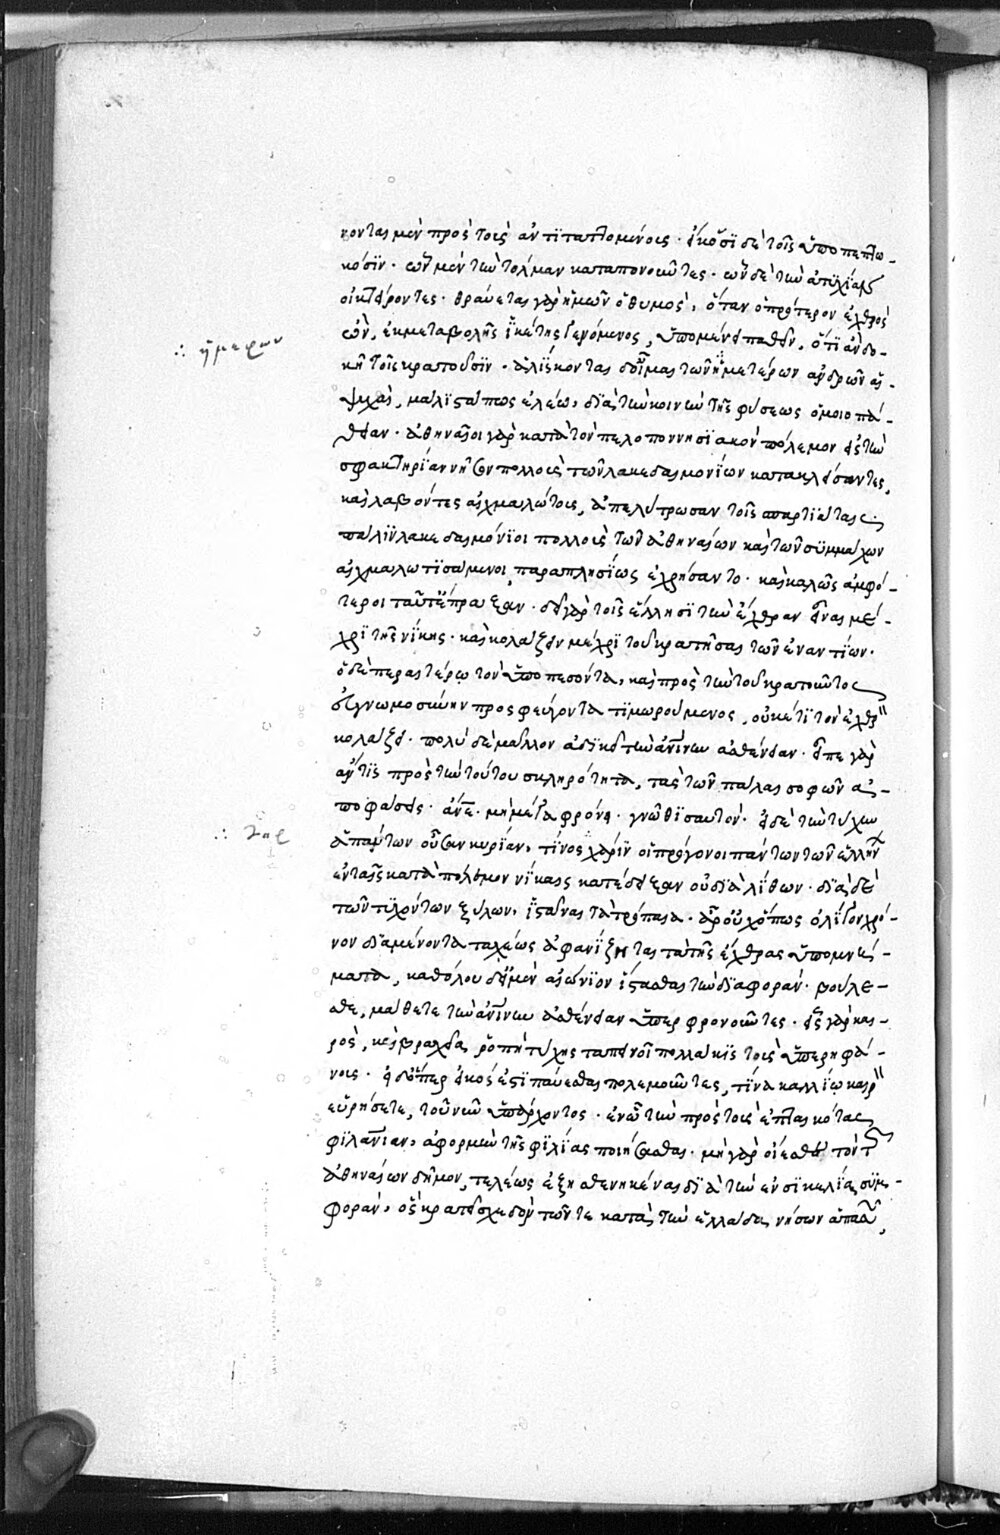 νοντας μὲν πρὸς τοὺς ἀντιταττομένους · εἴκουσι δὲ τοῖς ὑποπεπτω-
κόσιν · ὧν μὲν τὴν τόλμαν καταπονοῦντες · ὧν δὲ τὴν ἀτυχίαν
οἰκτείροντες · θραύεται γὰρ ἡμῶν ὁ θυμὸς, ὅταν ὁ πρότερον ἐχθρὸς
ὢν, ἐκ μεταβολῆς ἱκέτης γενόμενος, ὑπομένει παθεῖν, ὅτι ἂν δο-
κῆ τοῖς κρατοῦσιν · ἁλίσκονται δ' οἶμαι τῶν ἡμετέρων ἀνδρῶν αἱ
ψυχαὶ, μάλιστά πως ἐλέω, διὰ τὴν κοινὴν τῆς φύσεως ὁμοιοπά-
θειαν · ἀθηναῖοι γὰρ κατὰ τὸν πελοποννησιακὸν πόλεμον εἰς τὴν
σφακτηρίαν νῆσον πολλοὺς τῶν λακεδαιμονίων κατακλείσαντες,
καὶ λαβόντες αἰχμαλώτους, ἀπελύτρωσαν τοῖς σπαρτιάταις
πάλιν λακεδαιμόνιοι πολλοὺς τῶν ἀθηναίων καὶ τῶν συμμάχων
αἰχμαλωτισάμενοι, παραπλησίως ἐχρήσαντο · καὶ καλῶς ἀμφό-
τεροι ταῦτ' ἔπραξαν · δεῖ γὰρ τοῖς ἕλλησι τὴν ἔχθραν εἶναι μέ-
χρι τῆς νίκης · καὶ κολάζειν μέχρι τοῦ κρατῆσαι τῶν ἐναντίων ·
ὁ δὲ περαιτέρω τὸν ὑποπεσόντα, καὶ πρὸς τὴν τοῦ κρατοῦντος
εὐγνωμοσύνην προσφεύγοντα τιμωρούμενος, οὐκέτι τὸν ἐχθρ
κολάζει · πολὺ δὲ μᾶλλον ἀδικεῖ τὴν ἀνίνην ἀσθένειαν · εἴπε γὰρ
ἄν τις πρὸς τὴν τούτου σκληρότητα, τὰς τῶν πάλαι σοφῶν ἀ-
ποφάσεις · ἄνε · μὴ μέγα φρόνει · γνῶθι σαυτόν · ἴδε τὴν τύχην
ἁπάντων οὖσαν κυρίαν, τίνος χάριν οἱ πρόγονοι πάντων τῶν ἑλλήν
ἐν ταῖς κατὰ πόλεμον νίκαις κατέδειξαν οὐ διὰ λίθων · διὰ δὲ
τῶν τυχόντων ξύλων, ἱστάναι τὰ τρόπαια · ἆρ' οὐχ ὅπως ὀλίγον χρό-
νον διαμένοντα ταχέως ἀφανίζηται τὰ τῆς ἔχθρας ὑπομνή-
ματα, καθόλου δ' εἰ μὲν αἰώνιον ἵστασθαι τὴν διαφορὰν · βούλε-
σθε, μάθετε τὴν ἀνίνην ἀσθένειαν ὑπερφρονοῦντες · εἷς γὰρ και-
ρὸς, καὶ βραχεῖα ῥοπὴ τύχης ταπεινοῖ πολλάκις τοὺς ὑπερηφά-
νους · εἰ δ' ὅπερ εἰκός ἐστι παύεσθαι πολεμοῦντες, τίνα καλλίω καιρ
εὑρήσετε, τοῦ νῦν ὑπάρχοντος · ἐν ὧ τὴν πρὸς τοὺς ἐπταικότας
φιλανίαν, ἀφορμὴν τῆς φιλίας ποιήσασθαι · μὴ γὰρ οἴεσθε τὸν τ
ἀθηναίων δῆμον, τελέως ἐξησθενηκέναι διὰ τὴν ἐν σικελία συμ-
φορὰν, ὃς κρατεῖ σχεδὸν τῶν τε κατὰ τὴν ἑλλάδα νήσων ἁπασ,
∴ ἡμέρων